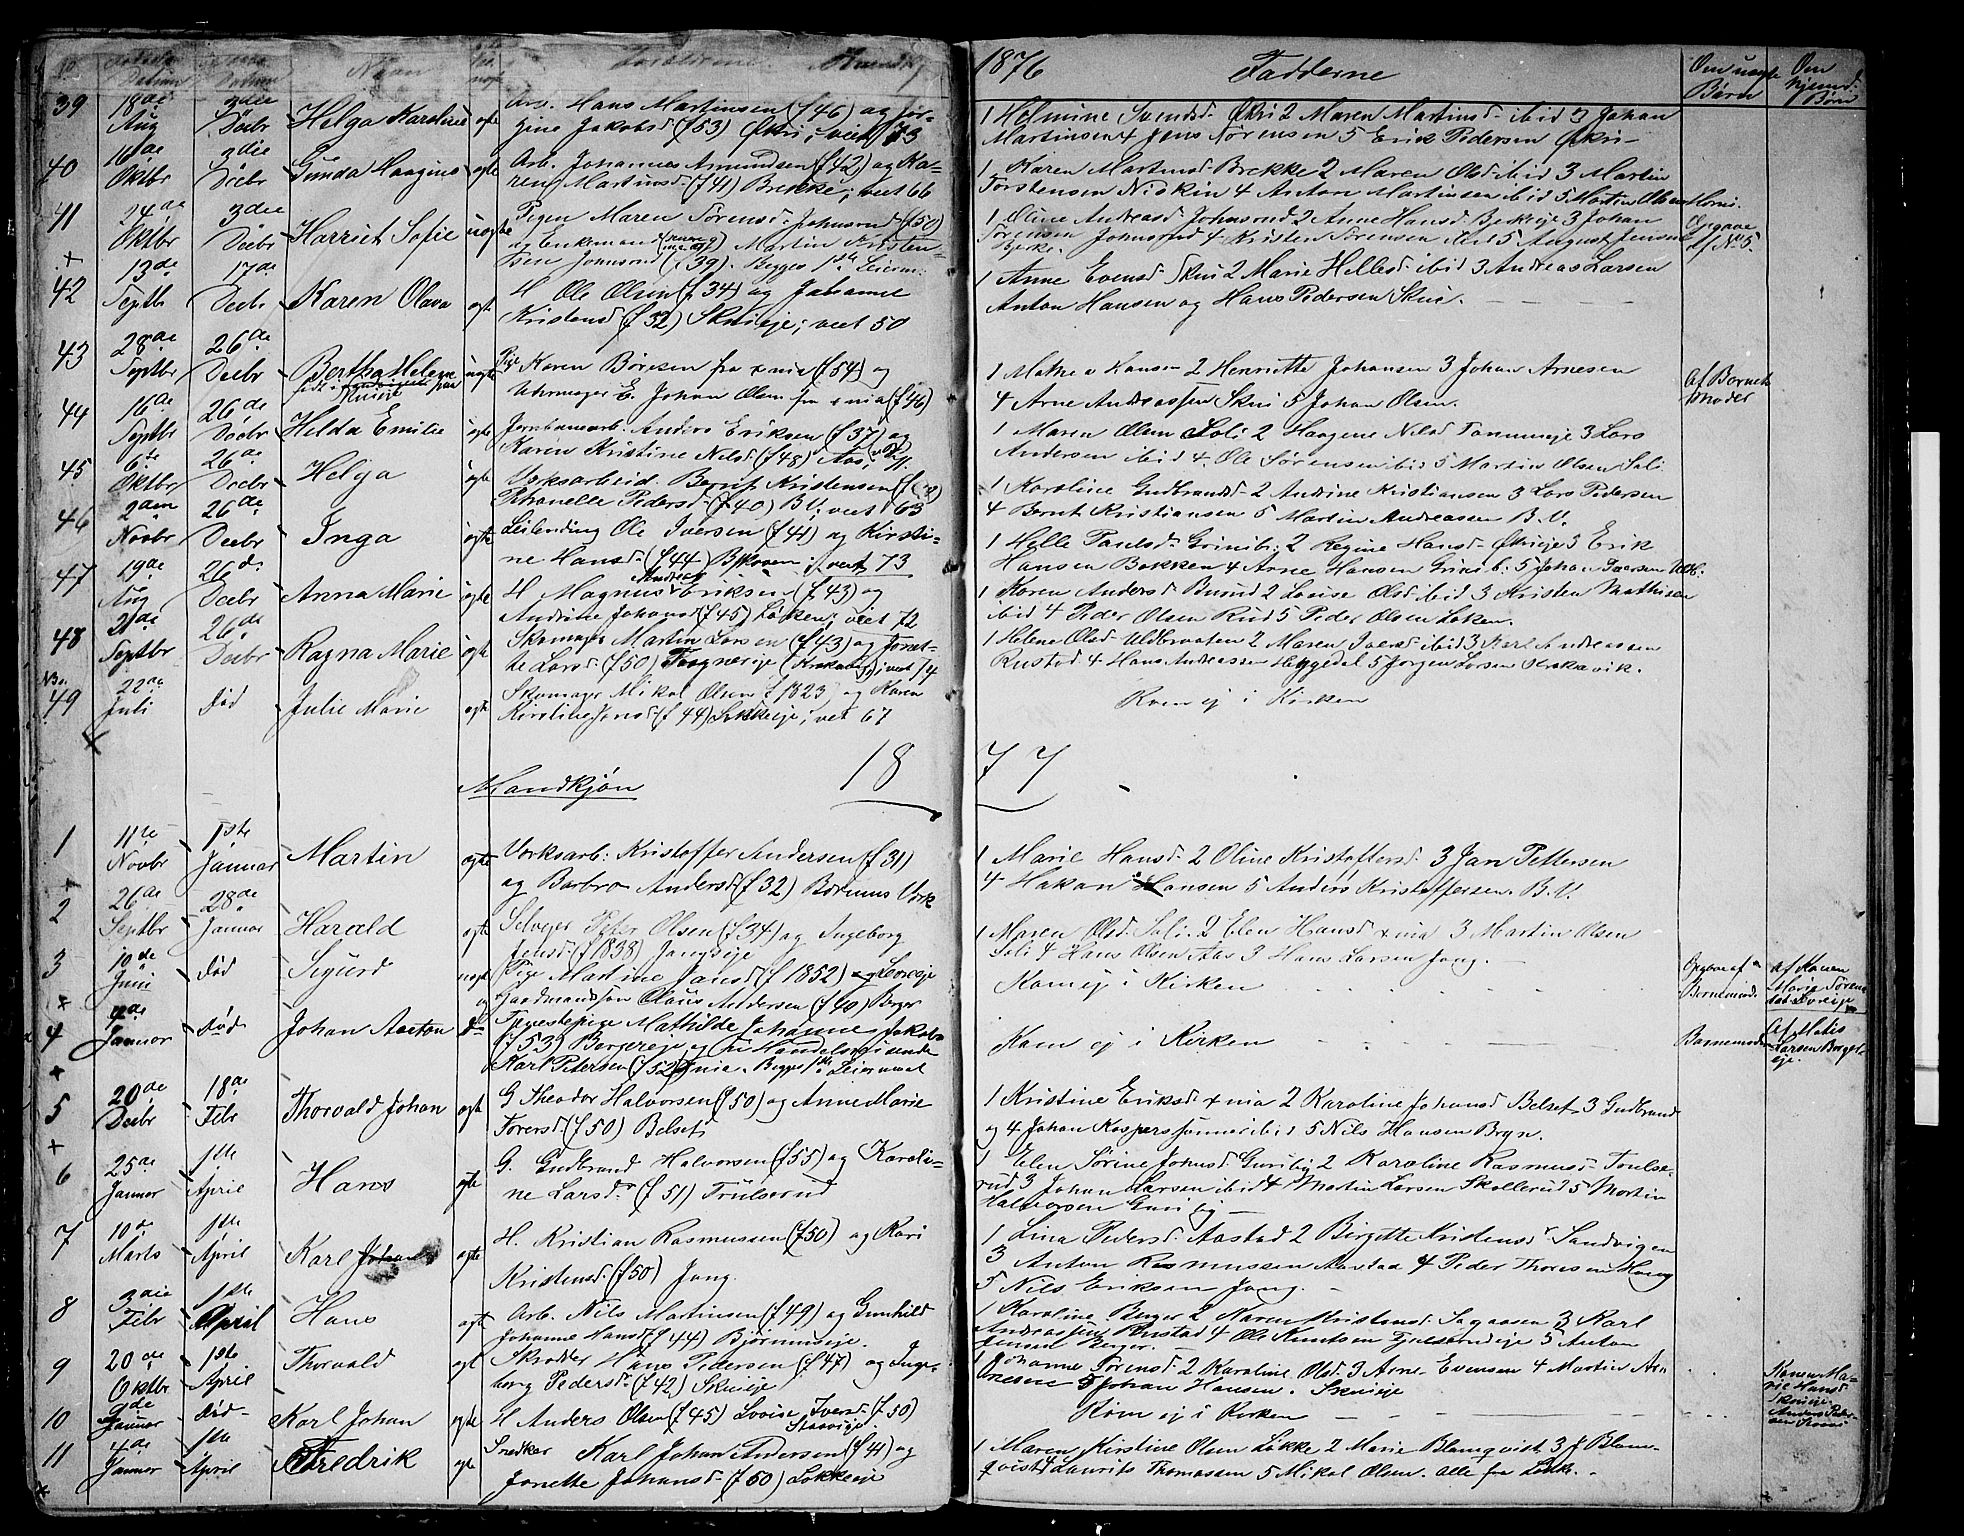 1876
Fadderne
Om uægte Børn
Om hjemd. Børn
Navn
39 18de Aug 3die Decbr Helga Karoline ægte Arb. Hans Martinsen (f 46) og
gine Jakobsd (f 53) Økri, viet 73
1 Helmine Svendsd Økri 2 Maren Martinsd ibid 3 Johan
Martinsen 4 Jens Sørensen 5 Erik Pedersen Økri
40 16de Oktbr 3die Decbr Gunda Haagine ægte Arb. Johannes Amundsen (f 42) og Ka-
ren Martinsd (f 41) Brekke; viet 66
1 Karen Martinsd Brekke 2 Maren Olsd ibid 3 Martin
Torstensen Niskin 4 Anton Martinsen ibid 5 Martin Olsen
41 24de Oktbr 3die Decbr Harriet Sofie uægte Pigen Maren Sørensd Johnsrud (f 50)
og Enkemand Martin Kristen-
sen Johnsrud (f 39). Begges 1ste Leierm.
1 Oline Andreasd Johnsrud 2 Anne Hansd Bekkeje 3 Johan
Sørensen Johnsrud 4 Kristen Sørensen ibid 5 August Jensen
Opgave af No 5.
42 13de Septbr 17de Decbr Karen Olava ægte H. Ole Olsen (f 34) og Johanne
Kristensd (f 32) Skuieje; viet 50
1 Anne Evensd Skui 2 Marie Hellesd ibid 3 Andreas Larsen
Anton Hansen og Hans Pedersen Skui.
43 28de Septbr 26de Decbr Bertha Helene uægte Pige Karen Børesen fra x nia (f 54) og
Uhrmager E. Johan Olsen fra x nia (f 46)
1 Mathea Hansen 2 Henriette Johansen 3 Johan Arnesen
4 Arne Andreassen Skui 5 Johan Olsen.
af Barnets Moder
44 16de Septbr 26de Decbr Helda Emilie ægte Jernbanearb. Anders Eriksen (f 37) og
Karen Kristine Nilsd (f 48) Aas,
1 Maren Olsen Soli 2 Haagene Nilsd Tanumseje 3 Lars
Andersen ibid 4. Ole Sørensen ibid 5 Martin Olsen Soli
45 6te Oktbr 26de Decbr Helga ægte Verksarbeid. Bernt Kristensen
Petronelle Pedersd (f 40) B.V. viet 63
1 Karoline Gudbrandsd 2 Andrine Kristiansen 3 Lars Pedersen
4 Bernt Kristiansen 5 Martin Andreassen B.V.
46 2den Novbr 26de Decbr Inga ægte Leilending Ole Iversen (f 41) og Kirsti-
ne Hansd (f 44) viet 73
1 Helle Paulsd Grinib. 2 Regine Hansd Økrieje 3 Erik
Hansen Bakken 4 Arne Hansen Grinib: 5 Johan Iversen
47 19de Aug 26de Decbr Anna Marie ægte H Magnus Andreas Eriksen (f 43) og
Andrine Johansd (f 45) Løken; viet 72
1 Karen Andersd Burud 2 Lovise Olsd ibid 3 Kristen Mathisen
ibid 4 Peder Olsen Rud 5 Peder Olsen Løken.
48 21de Septbr 26de Decbr Ragna Marie ægte Skomager Martin Larsen (f 43) og Jonet-
te Larsd (f 50) viet 74
1 Helene Olsd Uldbraaten 2 Maren Iversd ibid 3 Karl Andreassen
Rustad 4 Hans Andreassen Haggedal 5 Jørgen Larsen
49 22de Juli død Julie Marie ægte Skomager Mikal Olsen f 1823 og Karen
Kirstine Jensd (f 44) Løkkeeje; viet 67
Kom ej i Kirken
18 77
Mandkjøn
1 11te Novbr 1ste Januar Martin ægte Verksarb: Kristoffer Andersen (f 31)
og Barbro Andersd (f 32) Bærums Verk
1 Marie Hansd 2 Oline Kristoffersd 3 Jan Pettersen
4 Hakan Hansen 5 Anders Kristoffersen. B.V.
2 26de Septbr 28de Januar Harald ægte Selveier Peter Olsen (f 34) og Ingeborg
Jensd (f 1838) Jongseje
1 Maren Olsd Soli 2 Elen Hansd x nia 3 Martin Olsen
Soli 4 Hans Olsen Aas 3 Hans Larsen Jong.
3 10de Juni død Sigurd uægte Pige Martine Jansd (f 1852)
og Gaardmandssøn Claus Andersen (f 40) Berger
Kom ej i Kirken
Opgave af Barnemod.
af Konen Marie Sørens
4 4de Januar død Johan Anton do Tjenestepige Mathilde Johanne Jakobs
(f 53) Bergereje og Handelsreisende
Karl Petersen (f 52) x nia. Begges 1ste Leiermaal
Kom ej i Kirken
Barnemoder
af Matis Larsen Bergers-
eje.
5 20de Decbr 18de Febr Thorvald Johan ægte G Theodor Halvorsen (f 50) og Anne Marie
Torersd (f 50) Belset
1 Kristine Eriksd x nia 2 Karoline Johansd Belset 3 Gudbrand
og 4 Johan Kaspers sønner ibid 5 Nils Hansen Bryn.
6 25de Januar 1ste April Hans ægte G. Gudbrand Halvorsen (f 55) og Karoli-
ne Larsd (f 51) Trulserud
1 Elen Sørine Johnsd Guriby 2 Karoline Rasmusd Trulse-
rud 3 Johan Larsen ibid 4 Martin Larsen Skollerud 5 Martin
Halvorsen Guriby
7 10de Marts 1ste April Karl Johan ægte H. Kristian Rasmussen (f 50) og Kari
Kristensd (f 50) Jong.
1 Lina Pedersd Aastad 2 Birgitte Kristensd Sandvigen
3 Anton Rasmussen Aastad 4 Peder Thoresen Haug
5 Nils Eriksen Jong.
8 3die Febr 1ste April Hans ægte Arb. Nils Martinsen (f 49) og Gunhild
Johanne Hansd (f 44) Bjørumseje.
1 Karoline Berger 2 Karen Kristensd 3 Karl
Andreassen Rustad 4 Ole Knutsen 5 Anton
Jensen Berger.
9 20de Oktbr 1ste April Thorvald ægt Skrædder Hans Pedersen (f 47) og Inge-
borg Pedersd (f 42) Skuieje
1 Johanne Sørensd 2 Karoline Olsd 3 Arne Evensen 4 Martin Ar-
nesen 5 Johan Hansen. Skuieje
Konen Ma-
rie Hansd
Skuieje
10 9de Januar død Karl Johan ægte H Anders Olsen (f 45) Lovise Iversd (f 50)
Kom ej i Kirken
11 4de Januar 1ste April Fredrik ægte Snedker Karl Johan Andersen (f 41) og
Jonette Johansd (f 50) Løkkeeje
1 Maren Kirstine Olsen Løkke 2 Marie Blomqvist 3 J Blom-
qvist 4 Laurits Thomassen 5 Mikal Olsen. alle fra Løkke.